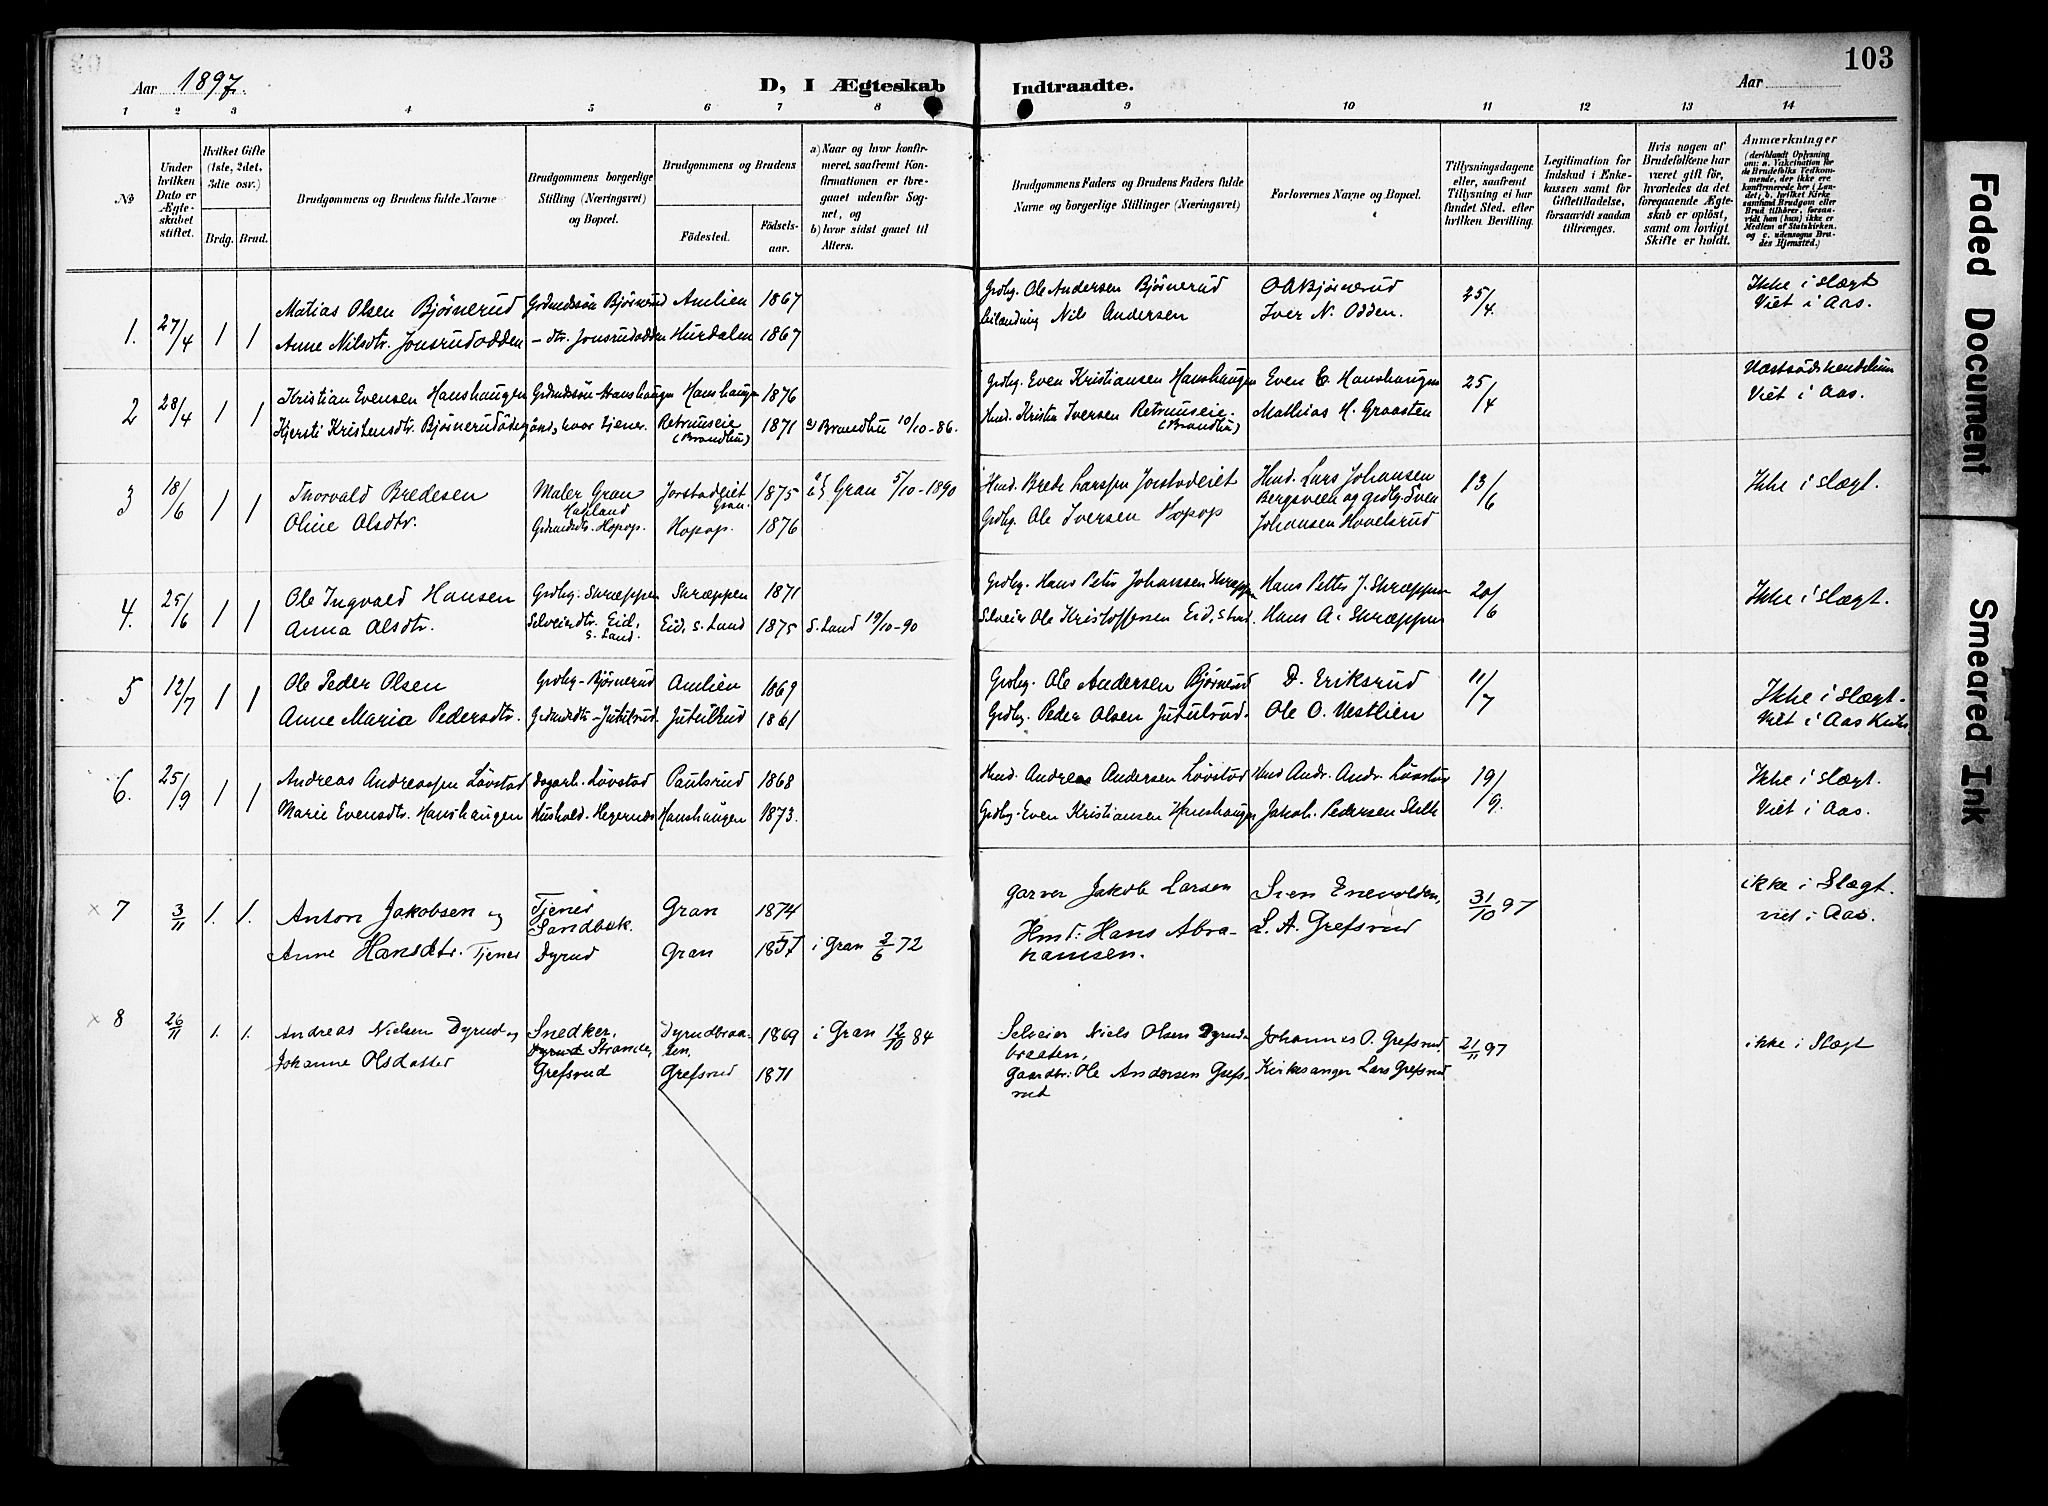 103
Aar 1897.
D, I Ægteskab Indtraadte.
Aar
1 2 3 4 5 6 7 8 9 10 11 12 13 14
No
Under hvilken Dato er Ægteskabet stiftet.
Hvilket Gifte (1ste, 2det, 3die osv.)
Brdg. Brud.
Brudgommens og Brudens fulde Navne
Brudgommens borgerlige Stilling (Næringsvei) og Bopæl.
Brudgommens og Brudens
Fødested.
Fødselsaar.
a) Naar og hvor konfirmeret, saafremt Konfirmationen er foregaaet udenfor Sognet, og
b) hvor sidst gaaet til Alters.
Brudgommens Faders og Brudens Faders fulde Navne og borgerlige Stillinger (Næringsvei)
Forlovernes Navne og Bopæl.
Tillysningsdagene eller, saafremt Tillysning ei har fundet Sted, efter hvilken Bevilling.
Legitimation for Indskud i Enkekassen samt for Giftetilladelse, forsaavidt saadan tiltrænges.
Hvis nogen af Brudefolkene har været gift før, hvorledes da det foregaaende Ægteskab er opløst, samt om lovligt Skifte er holdt.
Anmærkninger
(deriblandt Oplysning om: a. Vakcination for de Brudefolks Vedkommende, der ikke ere konfirmerede her i Landet; b. hvilket Kirkesamfund Brudgom eller Brud tilhører, forsaavidt han (hun) ikke er Medlem af Statskirken, og c. udensogns Brudes Hjemsted.)
1. 27/4 1 1 Matias Olsen Bjørnerud Grdmdssøn Bjørnerud Amlien 1867 Grdbg. Ole Andersen Bjørnerud O A Bjørnerud 25/4. Ikke i slægt
Anne Nilsdtr. Jonsrudodden - dtr. Jonsrudodden Hurdalen 1867 Nils Andersen Iver N. Odden. Viet i Aas.
2 28/4 1 1 Kristian Evensen Hanshaugen Grdmdssøn Hanshaugen Hanshaugen 1876 Grdbg. Even Kristiansen Hanshaugen Even C. Hanshaugen 25/4
Kjersti Kristensdtr. Bjørnerudødegård, hvor tjener. Retrumseie (Brandbu) 1871 a) Brandbu 10/10-86. Hmd. Kristen Iversen Retrumseie. (Brandbu) Mathias H. Graasten Viet i Aas.
3 18/6 1 1 Thorvald Bredesen Maler Gran Hadland Jorstadeiet Gran. 1875 a) b) Gran 5/10-1890 Hmd. Brede Larssen Jorstadeiet Hmd. Lars Johansen 13/6 Ikke i slægt.
Bergsveen og grdbg. Even
Oline Olsdtr. Grdmdsdtr. Hopop. Hopop. 1876 Grdbg. Ole Iversen Hopop Johansen Hovelsrud
4. 25/6 1 1 Ole Ingvald Hansen Grdbg. Skræppen Skræppen 1871 Grdbg. Hans Peter Johanssen Skræppen Hans Petter J. Skræppen 20/6 Ikke i slægt.
Anna Olsdtr. Selveierdtr. Eid, S. Land. Eid, S. Land 1875 S. Land 19/10-90 Selveier Ole Kristoffersen Eid, S. Land. Hans A. Skræppen
5 12/7 1 1 Ole Peder Olsen Grdbg - Bjørnerud Amlien 1869 Grdbg. Ole Andersen Bjørnerud D. Eriksrud 11/7 Ikke i slægt.
Anne Maria Pedersdtr. Grdmdsdtr - Jutulsrud Jutulsrud 1861 Grdbg. Peder Olsen Jutulsrud. Ole O. Vestlien Viet i Aas Kirke.
6. 25/9 1 1 Andreas Andreassen Løvstad Dagarb. Løvstad Paulsrud 1868 Hmd. Andreas Andersen Løvstad Hmd Andr. Andr. Løvstad 19/9. Ikke i slægt.
Marie Evensdtr. Hanshaugen Hushold. Hegernæs Hanshaugen 1873. Grdbg. Even Kristiansen Hanshaugen Jakob Pedersen Viet i Aas.
x 7 3/11 1. 1. Anton Jakobsen og Tjener Sandbæk. Gran 1874 garver Jakob Larsen Sven Enevolden, 31/10 97 ikke i Slægt.
Anne Hansdtr. Tjener Dyrud Gran 1857 i Gran 2/6 72 Hmd: Hans Abrahamsen. L. A. Grefsrud viet i Aas.
x 8 26/11 1. 1. Andreas Nielsen Dyrud og Snedker, Dyrud Strande, Dyrudbraaten. 1869 i Gran 12/10 84 Selveier Niels Olsen Dyrudbraaten, Johannes O. Grefsrud. 21/11 97 ikke i Slægt
Johanne Olsdatter Grefsrud Grefsrud 1871 gaardbr: Ole Andersen Grefsrud Kirkesanger Lars Grefsrud
Faded Document
Smeared Ink